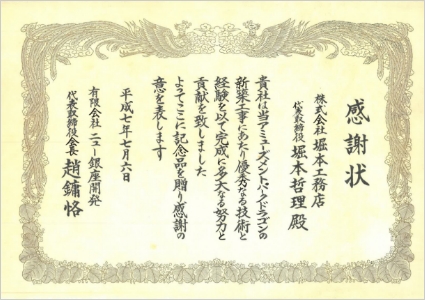 感謝状
株式会社 堀本工務店
代表取締役 堀本哲理 殿
貴社は当アミューズメントパークドラゴンの
新築工事にあたり優秀なる技術と
経験を以て完成に多大なる努力と
貢献を致しました
よってここに記念品を贈り感謝の
意を表します
平成七年七月六日
有限会社 ニュー銀座開発
代表取締役会長 趙鏞恪